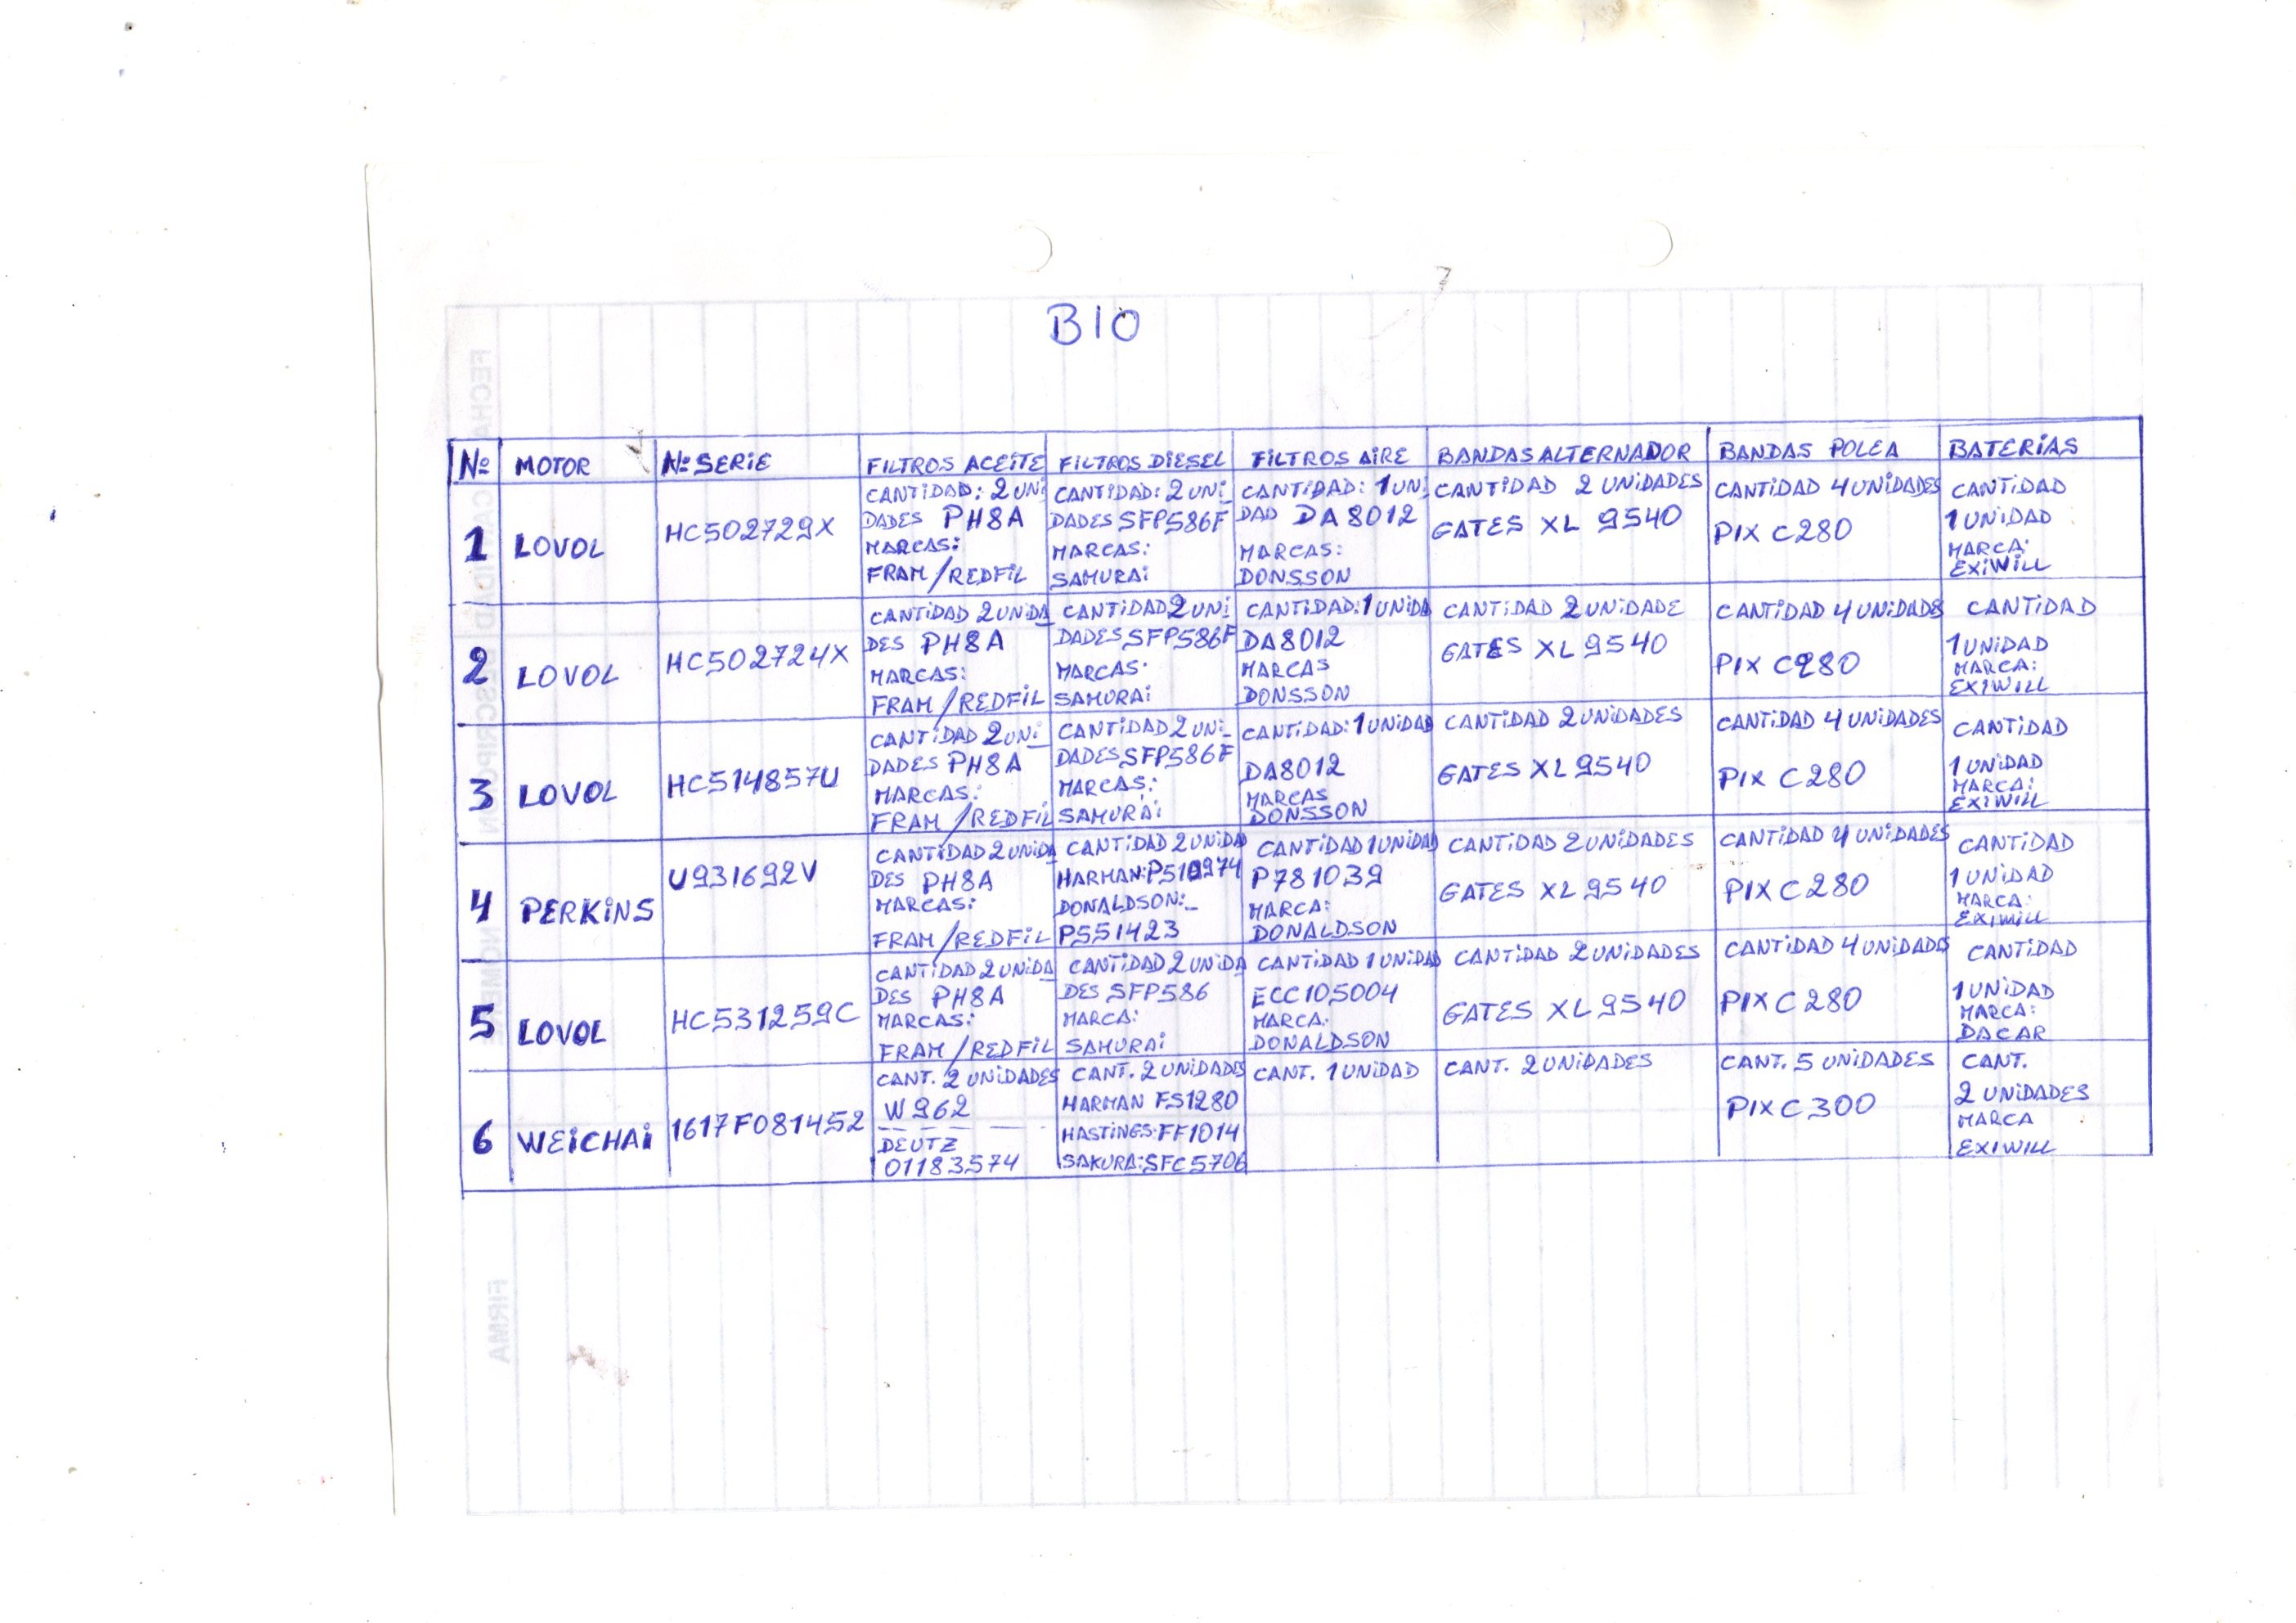 BIO
Nº MOTOR Nº SERIE FILTROS ACEITE FILTROS DIESEL FILTROS AIRE BANDAS ALTERNADOR BANDAS POLEA BATERIAS
1
LOVOL
HC502729X
CANTIDAD: 2 UNI
DADES PH8A
MARCAS:
FRAM/REDFIL
CANTIDAD: 2 UNI_
DADES SFP586F
MARCAS:
SAMURAI
CANTIDAD: 1 UNI
DAD DA8012
MARCAS:
DONSSON
CANTIDAD 2 UNIDADES
GATES XL 9540
CANTIDAD 4 UNIDADES
PIX C280
CANTIDAD
1 UNIDAD
MARCA:
EXIWILL
2
LOVOL
HC502724X
CANTIDAD 2 UNIDA
DES PH8A
MARCAS:
FRAM/REDFIL
CANTIDAD 2 UNI
DADES SFP586F
MARCAS.
SAMURAI
CANTIDAD: 1 UNIDA
DA8012
MARCAS
DONSSON
CANTIDAD 2 UNIDADE
GATES XL 9540
CANTIDAD 4 UNIDADES
PIX C280
CANTIDAD
1 UNIDAD
MARCA:
EXIWILL
3
LOVOL
HC514857U
CANTIDAD 2 UNI
DADES PH8A
MARCAS:
FRAM/REDFIL
CANTIDAD 2 UNI_
DADES SFP586F
MARCAS:
SAMURAI
CANTIDAD: 1 UNIDAD
DA8012
MARCAS
DONSSON
CANTIDAD 2 UNIDADES
GATES XL 9540
CANTIDAD 4 UNIDADES
PIX C280
CANTIDAD
1 UNIDAD
MARCA:
EXIWILL
4
PERKINS
U931692V
CANTIDAD 2 UNIDA
DES PH8A
MARCAS:
FRAM/REDFIL
CANTIDAD 2 UNIDA
HARMAN:
DONALDSON:_
P551423
CANTIDAD 1 UNIDAD
P781039
MARCA:
DONALDSON
CANTIDAD 2 UNIDADES
GATES XL 9540
CANTIDAD 4 UNIDADES
PIX C280
CANTIDAD
1 UNIDAD
MARCA:
EXIWILL
5
LOVOL
HC531259C
CANTIDAD 2 UNIDA
DES PH8A
MARCAS:
FRAM/REDFIL
CANTIDAD 2 UNIDA
DES SFP586
MARCA:
SAMURAI
CANTIDAD 1 UNIDAD
ECC105004
MARCA:
DONALDSON
CANTIDAD 2 UNIDADES
GATES XL 9540
CANTIDAD 4 UNIDADES
PIX C280
CANTIDAD
1 UNIDAD
MARCA:
DACAR
6
WEICHAI
1617F081452
CANT. 2 UNIDADES
W962
DEUTZ
01183574
CANT. 2 UNIDADES
HARMAN FS1280
HASTINGS:FF1014
SAKURA:SFC5706
CANT. 1 UNIDAD
CANT. 2 UNIDADES
CANT. 5 UNIDADES
PIX C300
CANT.
2 UNIDADES
MARCA
EXIWILL
FIRMA